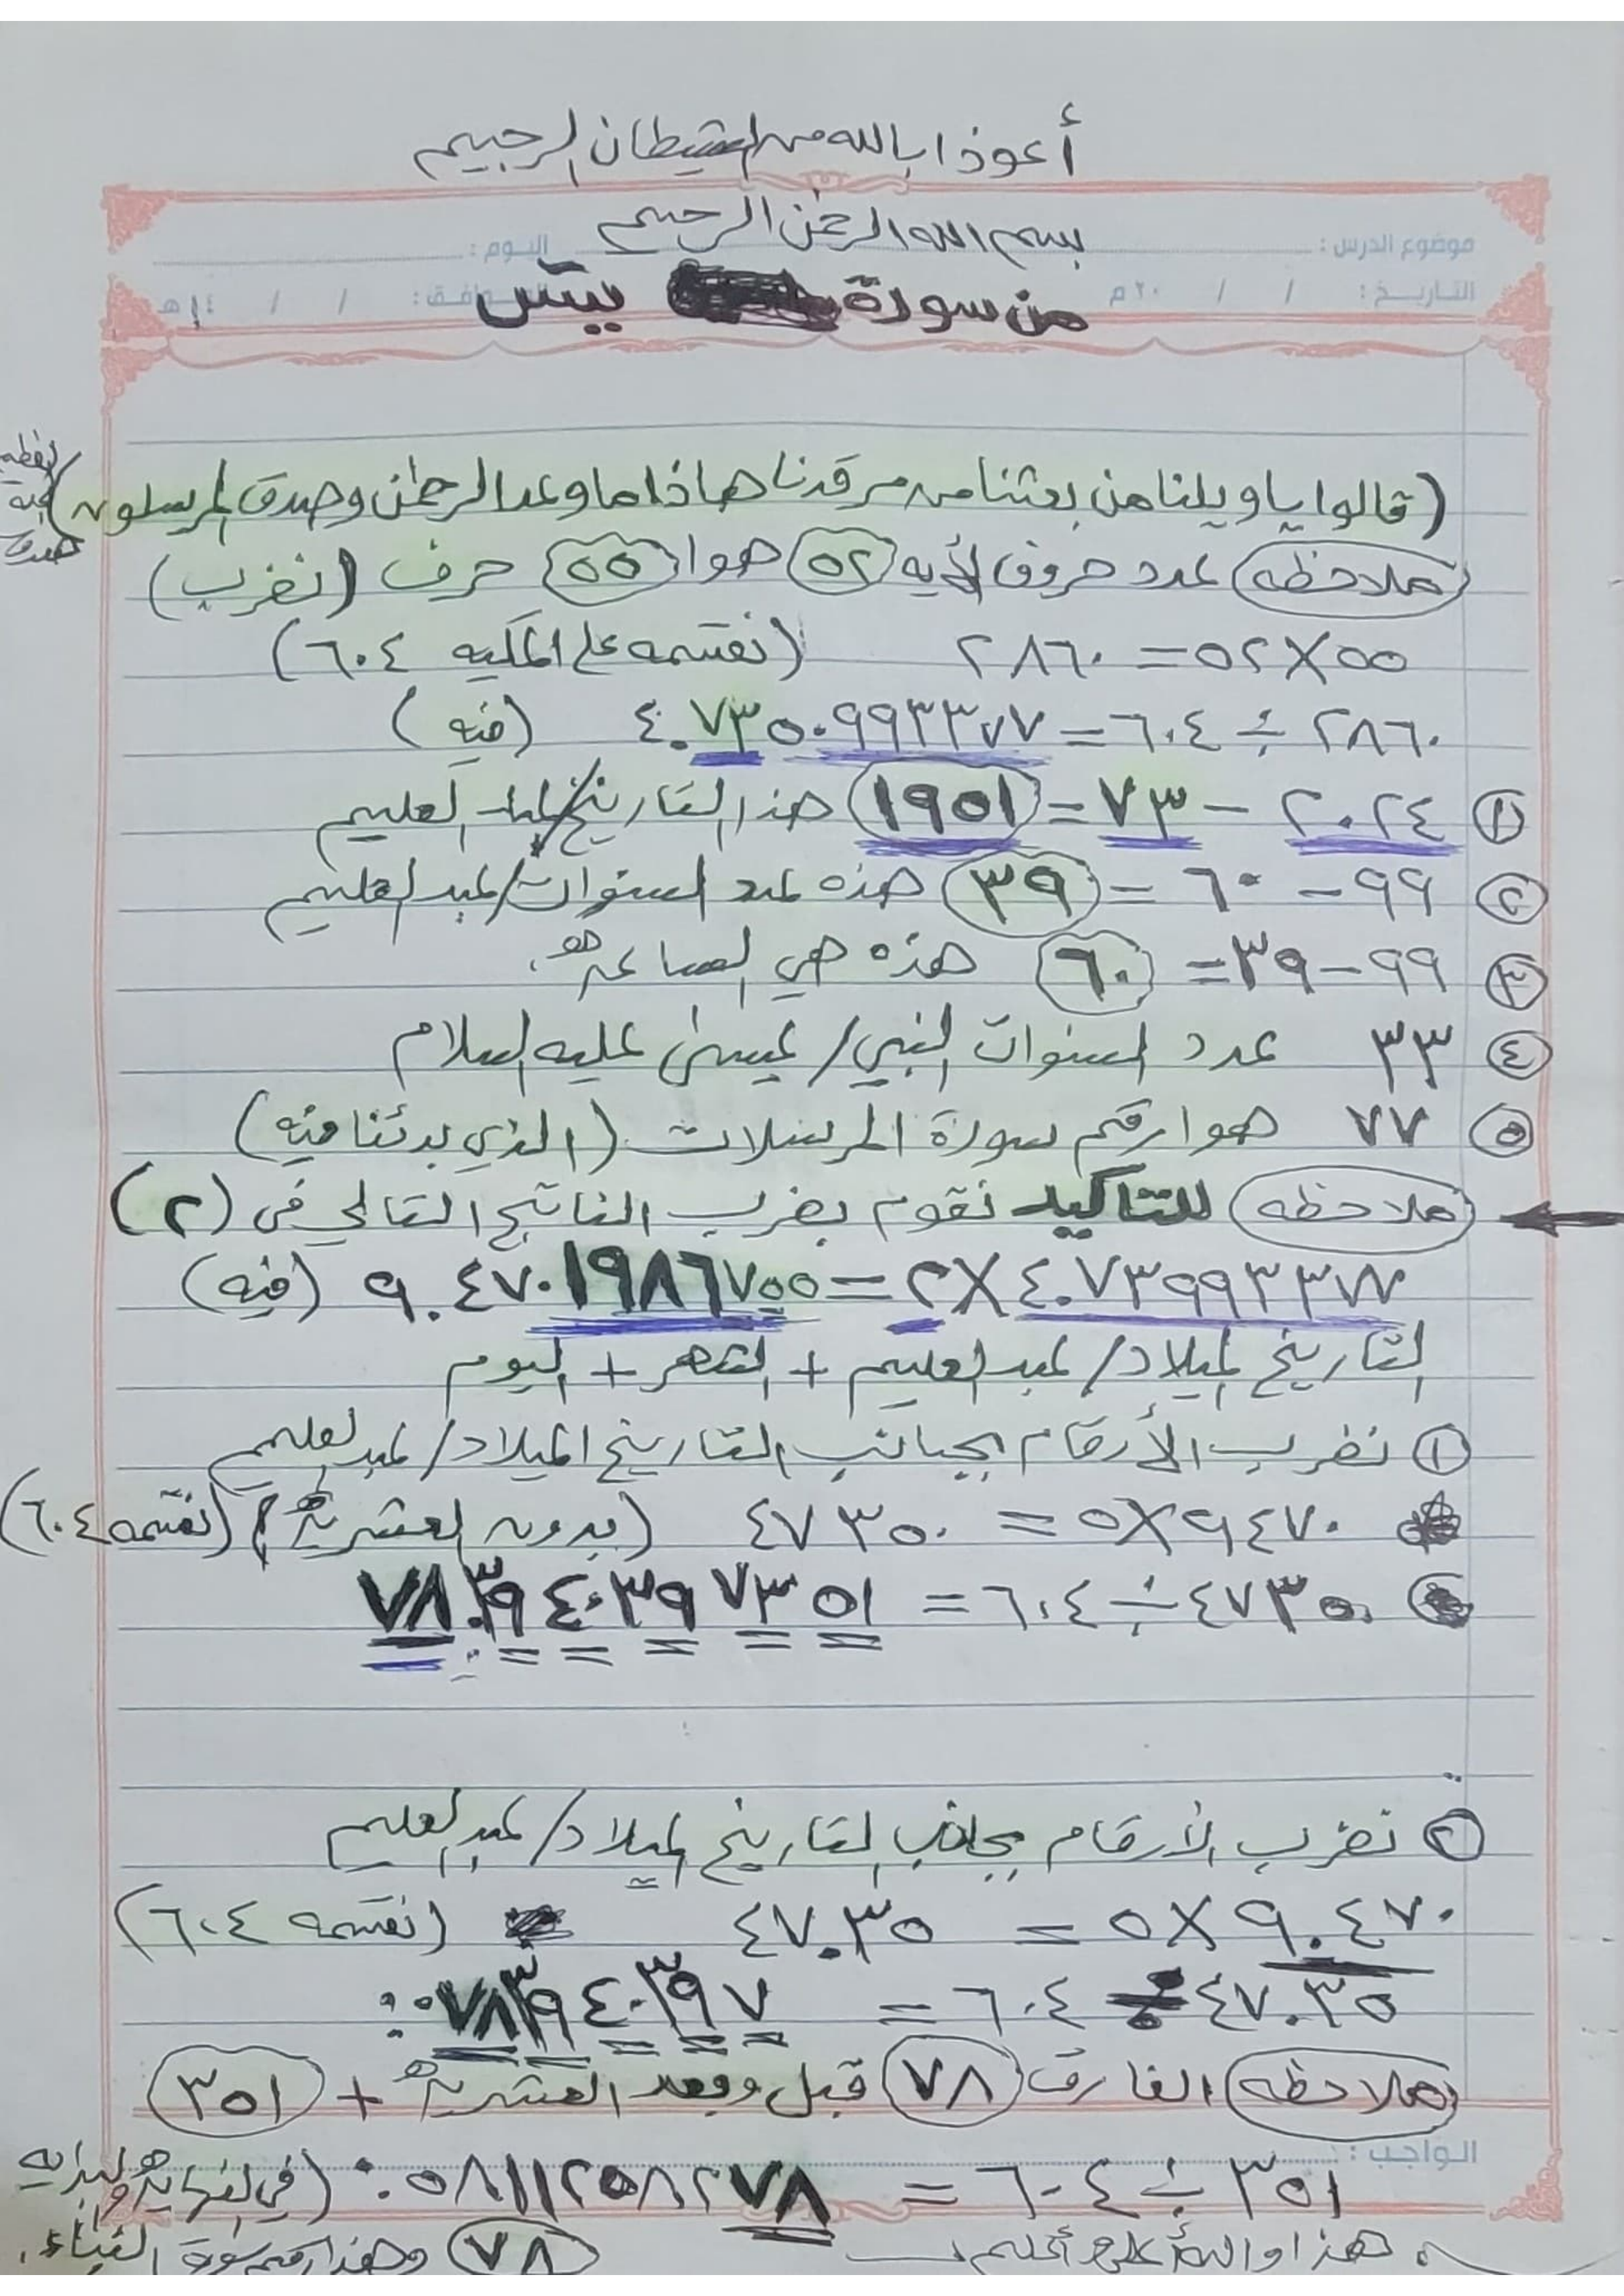 أعوذ ا بالله من الشيطان الرجيم
بسم الله الرحمن الرحيم
موضوع الدرس : اليوم :
من سورة يس
التاريخ : / / ٢٠ م الموافق : / / ١٤ هـ
(قالوا يا ويلنا من بعثنا من مرقدنا هاذا ما وعد الرحمن وصدق المرسلون)
ملاحظه عدد حروف الأيه ٥٢ هوا ٥٥ حرف (نضرب)
٥٥ × ٥٢ = ٢٨٦٠ (نقسمه على المكيه ٦٠٤)
٢٨٦٠ ÷ ٦٠٤ = ٤.٧٣٥٠٩٩٣٣٧٧ (فيه)
① ٢٠٢٤ - ٧٣ = ١٩٥١ هذا التاريخ / عبد العليم
② ٩٩ - ٦٠ = ٣٩ هذه عدد السنوات / عبد العليم
③ ٩٩ - ٣٩ = ٦٠ هذه هي الساعه
④ ٣٣ عدد السنوات النبي / عيسى عليه السلام
⑤ ٧٧ هوا رقم سورة المرسلات (الذي بدئنا منه)
ملاحظه للتاكيد نقوم بضرب الناتج التالي في (٢)
٤.٧٣٩٩٣٣٧٧ × ٢ = ٩.٤٧٠١٩٨٦٧٥٥ (فيه)
التاريخ الميلاد / عبد العليم + الشهر + اليوم
① نضرب الأرقام بجانب التاريخ الميلاد / عبد العليم
٩٤٧٠ × ٥ = ٤٧٣٥٠ (بدون العشريه) (نقسمه ٦٠٤)
٤٧٣٥٠ ÷ ٦٠٤ = ٧٨.٣٩٤٠٣٩٧٣٥١
② نضرب الأرقام بجانب التاريخ الميلاد / عبد العليم
٩.٤٧٠ × ٥ = ٤٧.٣٥ (نقسمه ٦٠٤)
٤٧.٣٥ ÷ ٦٠٤ = ٠.٠٧٨٣٩٤٠٣٩٧
ملاحظه الفارق ٧٨ قبل وبعد العشريه + ٣٥١
الواجب :
٣٥١ ÷ ٦٠٤ = ٠.٥٨١١٢٥٨٢٧٨ (في النهايه والبدايه
هذا والله أعلى وأعلم ٧٨ وهذا رقم سورة النباء.